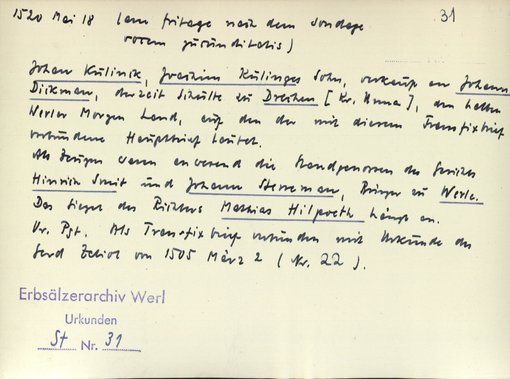 31
1520 Mai 18 (am fritage nach dem sondage
vocem jucunditatis)
Johan Külinck, Joachim Külinges Sohn, verkauft an Johann
Dickman, derzeit Schulte zu Dreihen [Kr. Unna], den halben
Werler Morgen Land, auf den der mit diesem Transfixbrief
verbundene Hauptbrief lautet.
Als Zeugen waren anwesend die Standgenossen des Gerichts
Hinrich Smit und Johann Sterreman, Bürger zu Werle.
Das Siegel des Richters Mathias Hilproeth hängt an.
Or. Pgt. Als Transfixbrief verbunden mit Urkunde des
Gerd von 1505 März 2 (Nr. 22).
Erbsälzerarchiv Werl
Urkunden
St Nr. 31